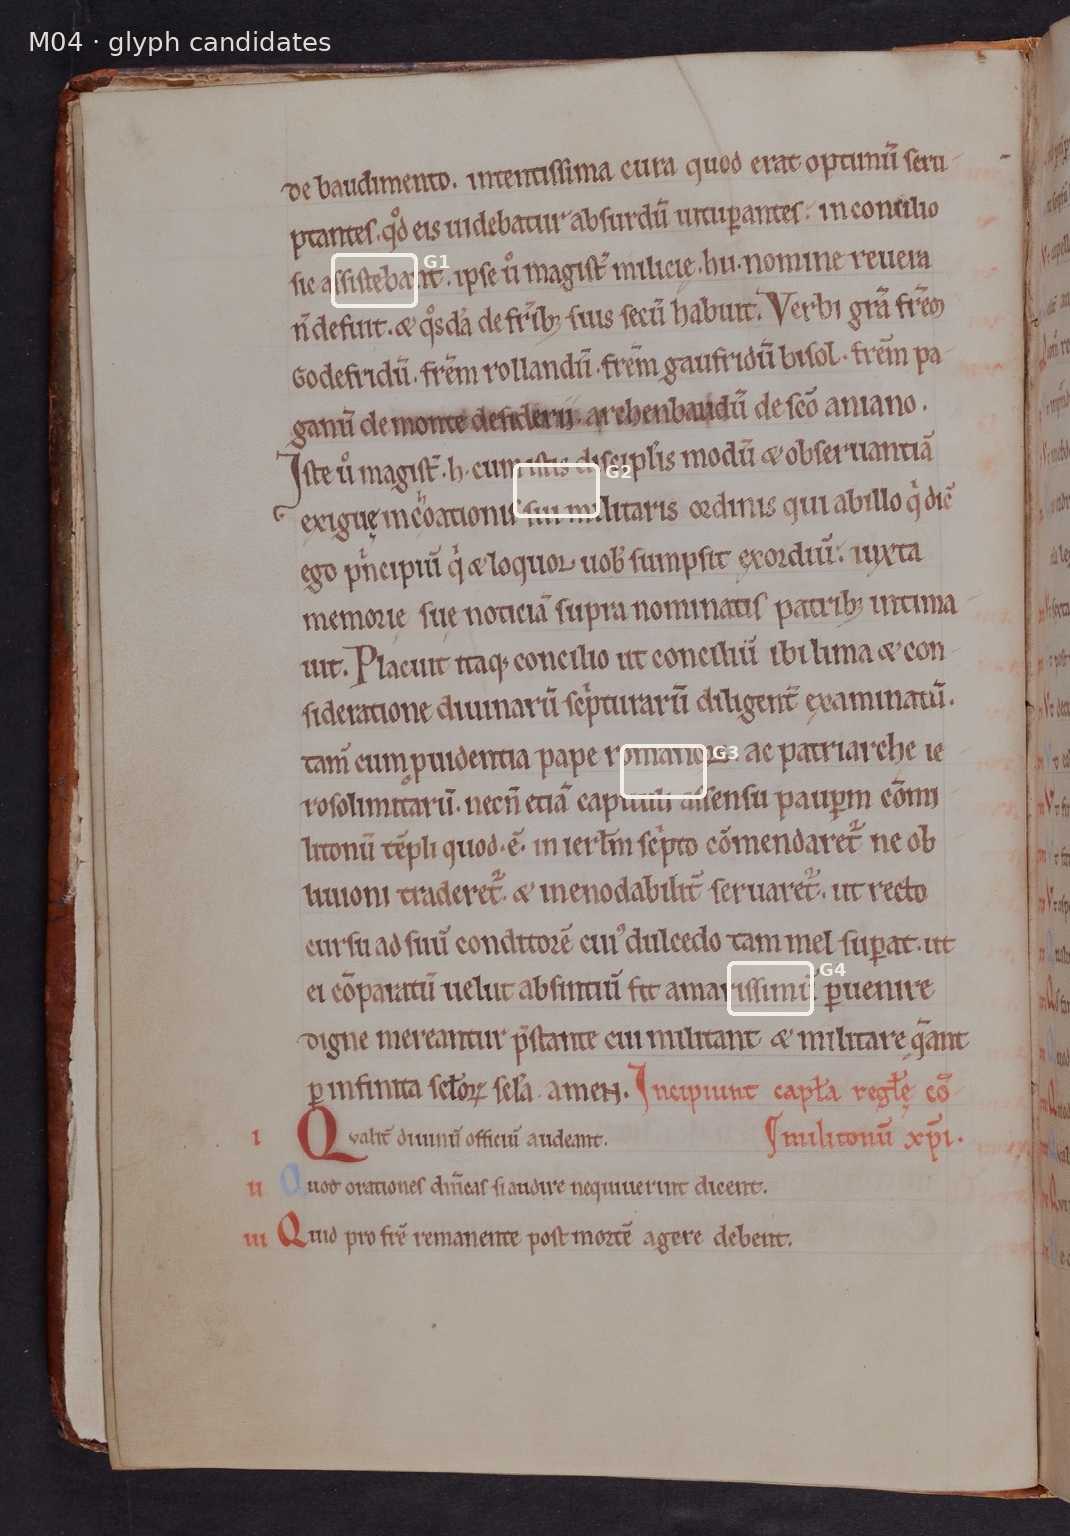 M04 · glyph candidates
de baudimento. intentissima cura quod erat optimū scru
ptantes. qd̊ eis uidebatur absurdū uitup̄antes. in concilio
sic assistebant. ipse ů magist̄ milicie .hu. nomine reuera
G1
n̄ defuit. & q̊sdā de fr̄ib; suis secū habuit. Verbi grā frēm
Godefridū. frēm rollandū. frēm gaufridū bisol. frēm pa
ganū de monte desiderii. archenbaudū de scō aniano.
Iste ů magist̄ .h. cum istis discipl̄is modū & obseruantiā
G2
exiguę inchoationis sui militaris ordinis qui ab illo q̇ dic̄
ego ṗncipiū q̇ & loquor uob̄ sumpsit exordiū. iuxta
memorie suę noticiā supra nominatis patrib; intima
uit. Placuit itaq; concilio ut conciliū ibi lima & con
sideratione diuinarū sċpturarū diligent̄ examinatū.
tam̄ cum puidentia pape romanor̄ ac patriarche ie
G3
rosolimitarū. necn̄ etiā capituli assensu paup̄m cōmi
litonū tēpli quod .ē. in ierłm sċpto cōmendaret̄ ne ob
liuioni traderet̄. & inenodabilit̄ seruaret̄. ut recto
cursu ad suū conditorē cui' dulcedo tam mel sup̄at. ut
ei cōparatū uelut absintiū fit amarissimū p̄uenire
G4
digne mereantur p̄stante cui militant & militare q̄ant
p̄ infinita scłoꝝ scła. amen. Incipiunt capła regłę cō
militonū xp̄i.
i Qualit̄ diuinū officiū audeant.
ii Quot orationes dn̄icas si audire nequiuerint dicent.
iii Quid pro frē remanente post mortē agere debent.